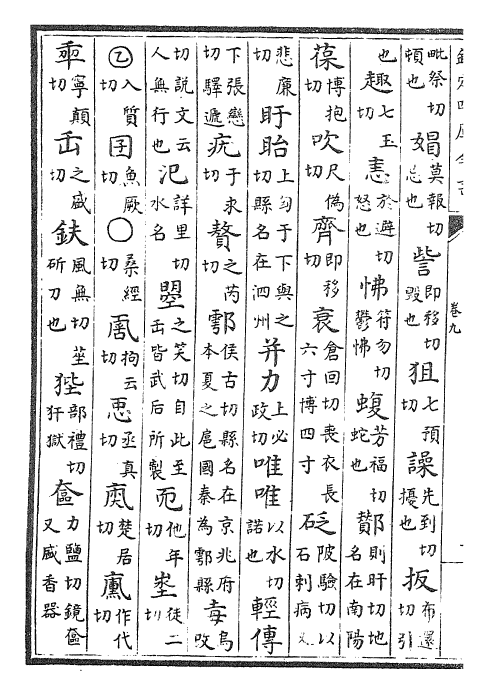 欽定四庫全書
卷九
毗祭切頓也媢莫報切忌也訾即移切毀也狙七預切譟先到切擾也扳布還切引
也趣七玉切恚於避切怒也怫符勿切鬱怫蝮芳福切蛇也酇則旰切地名在南陽
葆博抱切吹尺偽切齊即移切衰倉回切喪衣長六寸博四寸砭陂驗切以石刺病又
悲廉切盱眙上匈于下與之切縣名在泗州并力上必政切唯唯以水切諾也輕傳
下張戀切驛遞疣于求切贅之芮切鄠侯古切縣名在京兆府本夏之扈國秦為鄠縣毐烏攺
切說文云人無行也汜詳里切水名曌之笑切自此至𠙺皆武后所製他年切埊徒二切
入質切囝魚厥切〇桑經切拘云切丞真切楚居切作代切
寧顛切𠙺之盛切鈇風無切莝斫刀也狴部禮切犴獄奩力鹽切鏡奩又盛香器